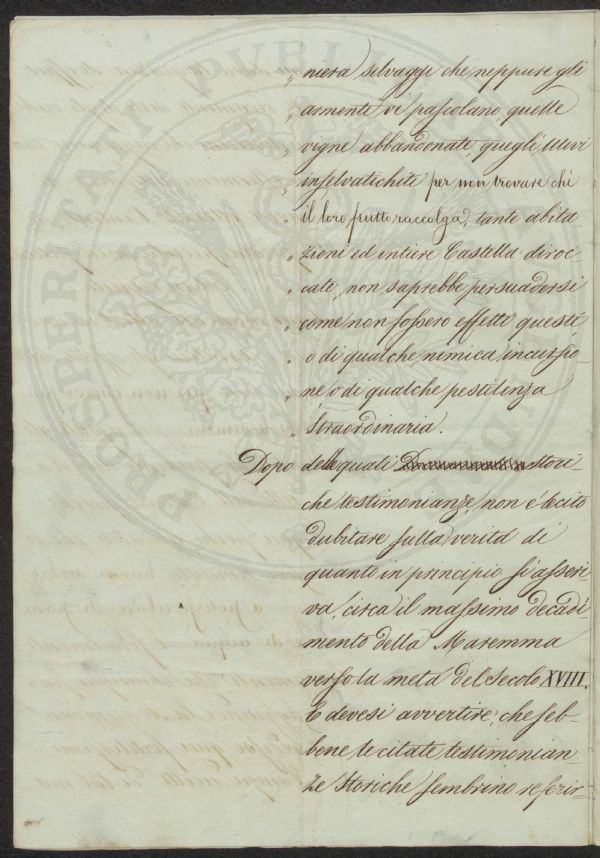 „ niera) selvaggi che neppure gli
„ armenti vi pascolano, quelle
„ vigne abbandonate, quegli Ulivi
„ inselvatichiti per non trovare chi
„ il loro frutto raccolga, tante abita-
„ zioni ed intiere Castella diroc-
„ cate, non saprebbe persuadersi
„ come non fossero effetti questi
„ o di qualche nimica incursio-
„ ne, o di qualche pestilenza
„ straordinaria.
Dopo delle quali stori-
che testimonianze, non è lecito
dubitare sulla verità di
quanto in principio si asseri-
va, circa il massimo decadi-
mento della Maremma
verso la metà del Secolo XVIII.
E devesi avvertire, che seb-
bene le citate testimonian-
ze storiche sembrino referir-
PROSPERITATI PUBLICAE